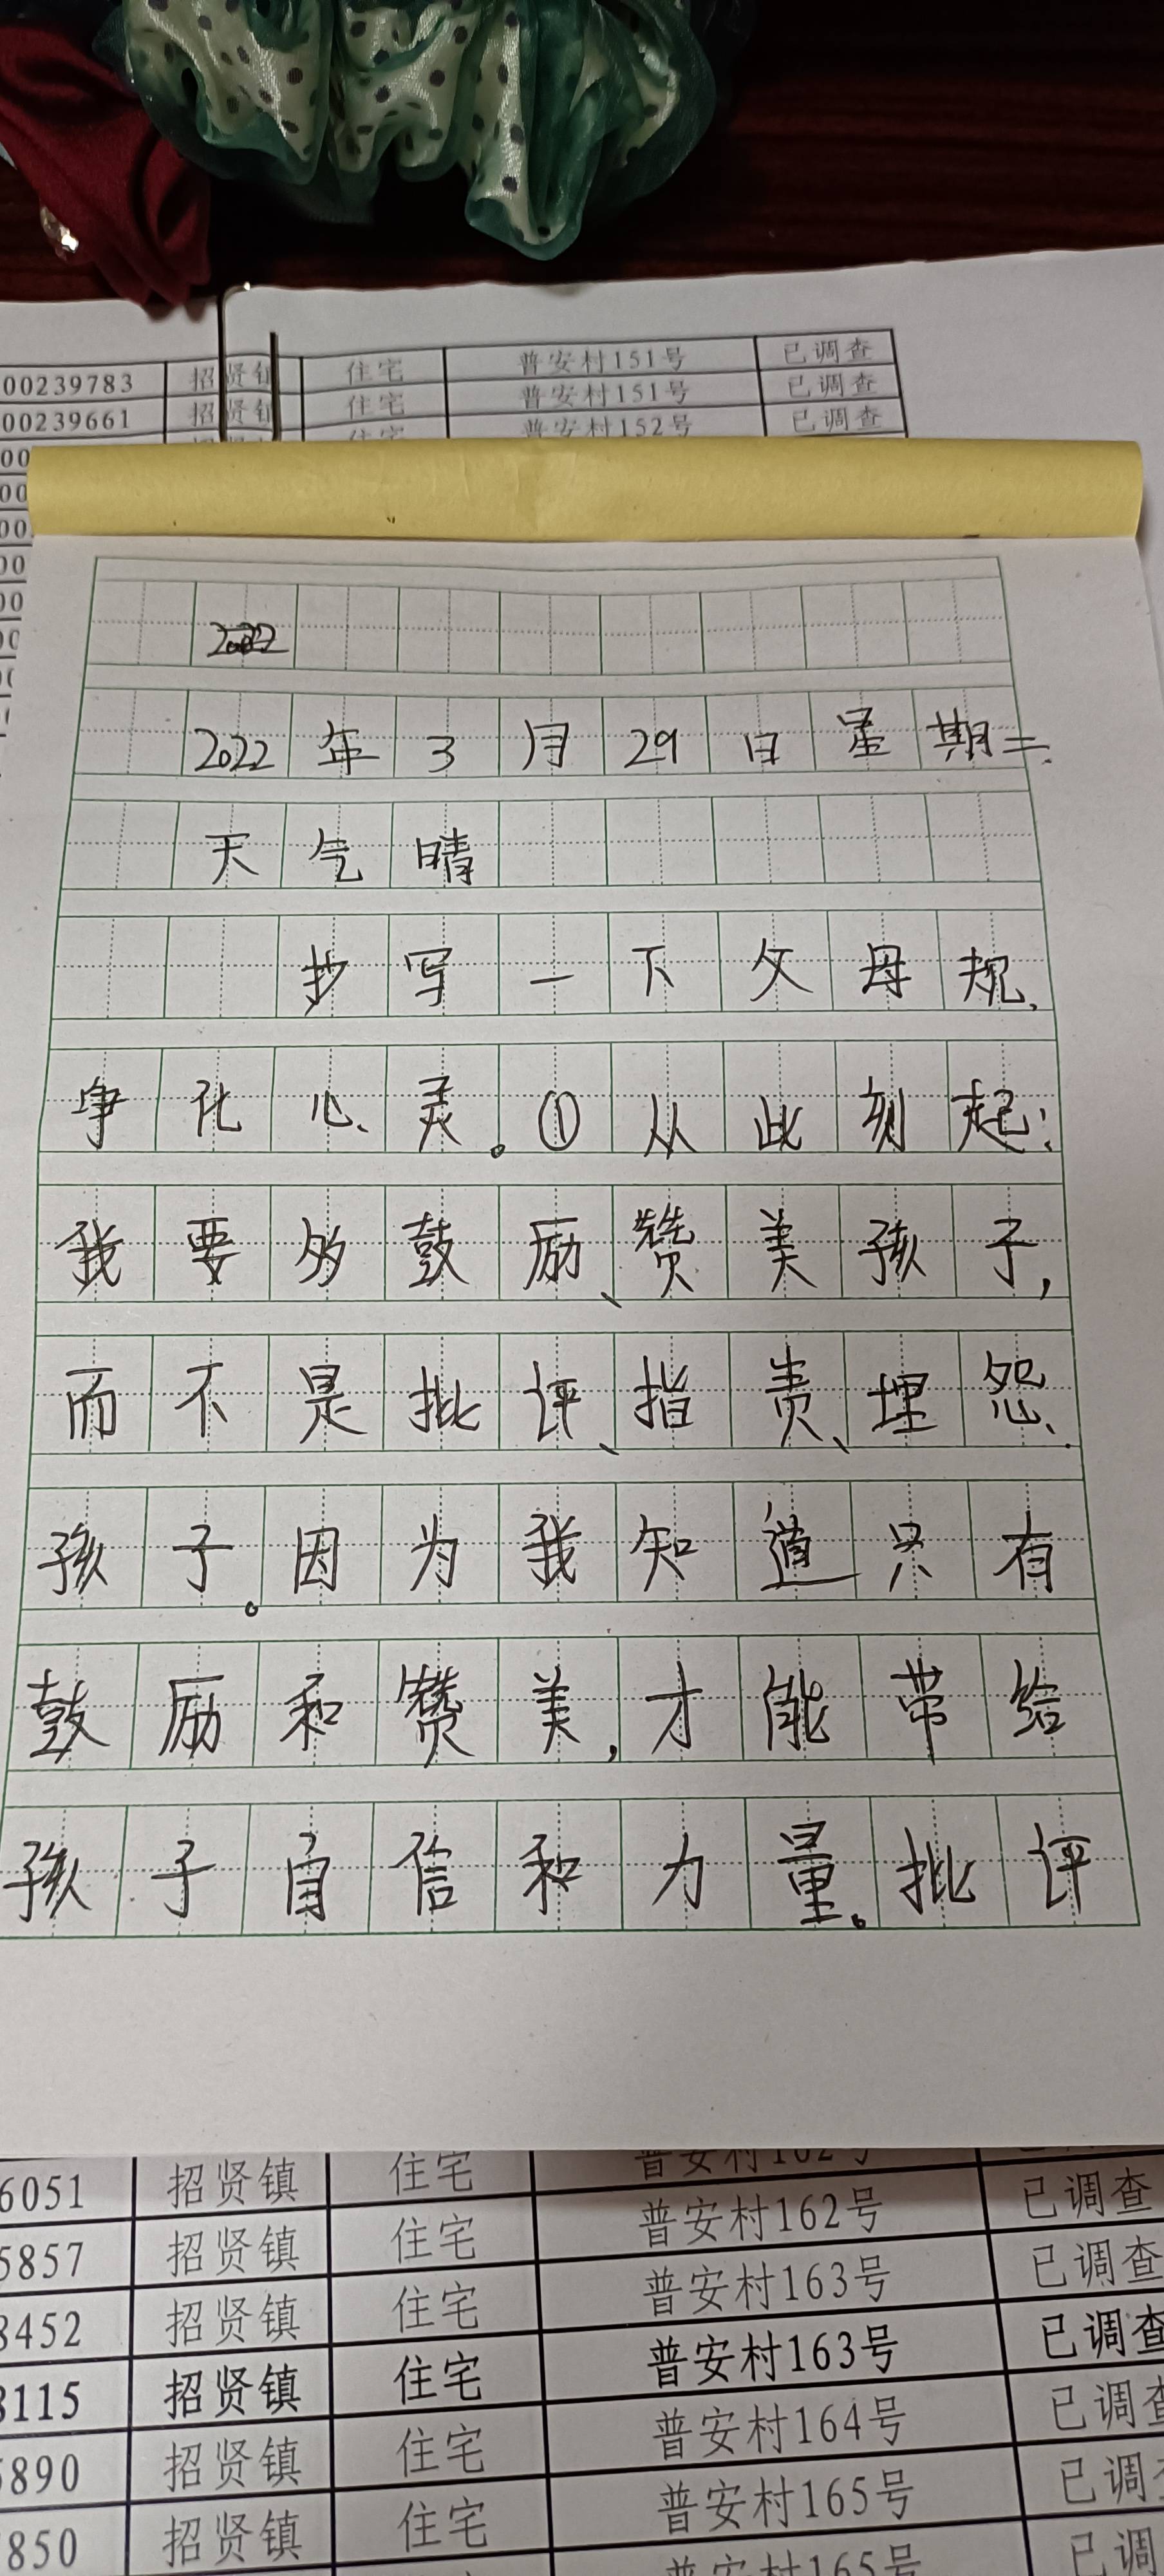 00239783 招贤镇 住宅 普安村151号 已调查
00239661 招贤镇 住宅 普安村151号 已调查
住宅 普安村152号 已调查
2022
2022年3月29日星期二
天气晴
抄写一下父母规、
净化心灵。①从此刻起:
我要多鼓励、赞美孩子,
而不是批评、指责、埋怨
孩子。因为我知道只有
鼓励和赞美,才能带给
孩子自信和力量。批评
6051 招贤镇 住宅 普安村162号
5857 招贤镇 住宅 普安村162号 已调查
8452 招贤镇 住宅 普安村163号 已调查
8115 招贤镇 住宅 普安村163号 已调查
890 招贤镇 住宅 普安村164号 已调查
850 招贤镇 住宅 普安村165号 已调
普安村165号 已调